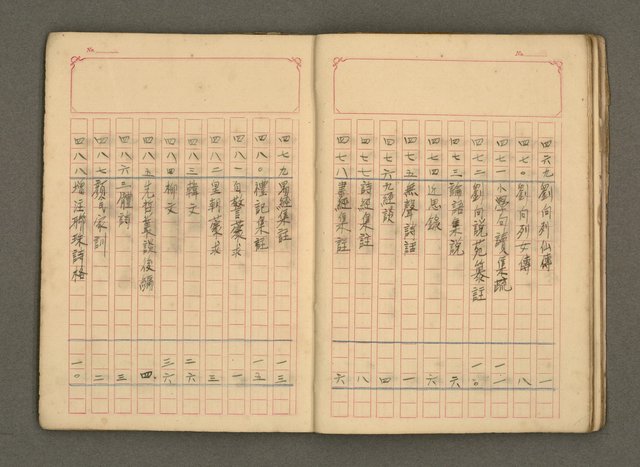 No.
四六九 劉向列仙傳 一
四七〇 劉向列女傳 八
四七一 小學句讀集疏 一一
四七二 劉向説苑纂註 一〇
四七三 論語集説 六
四七四 近思錄 六
四七五 無聲詩話 一
四七六 九經談 四
四七七 詩經集註 八
四七八 書經集註 六
No.
四七九 易經集註 一三
四八〇 禮記集註 一五
四八一 自警蒙求 一
四八二 皇朝蒙求 三
四八三 韓文 二六
四八四 柳文 三六
四八五 先哲叢談後編 四
四八六 三體詩 三
四八七 顏氏家訓 二
四八八 增注聯珠詩格 一〇